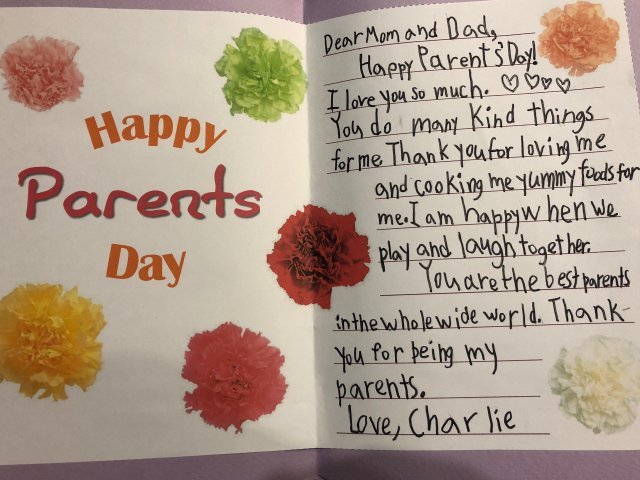 Happy
Parents
Day
Dear Mom and Dad,
Happy Parents' Day!
I love you so much. ♡♡♡♡
You do many kind things
for me. Thank you for loving me
and cooking me yummy foods for
me. I am happy when we
play and laugh together.
You are the best parents
in the whole wide world. Thank
you for being my
parents.
Love, Charlie